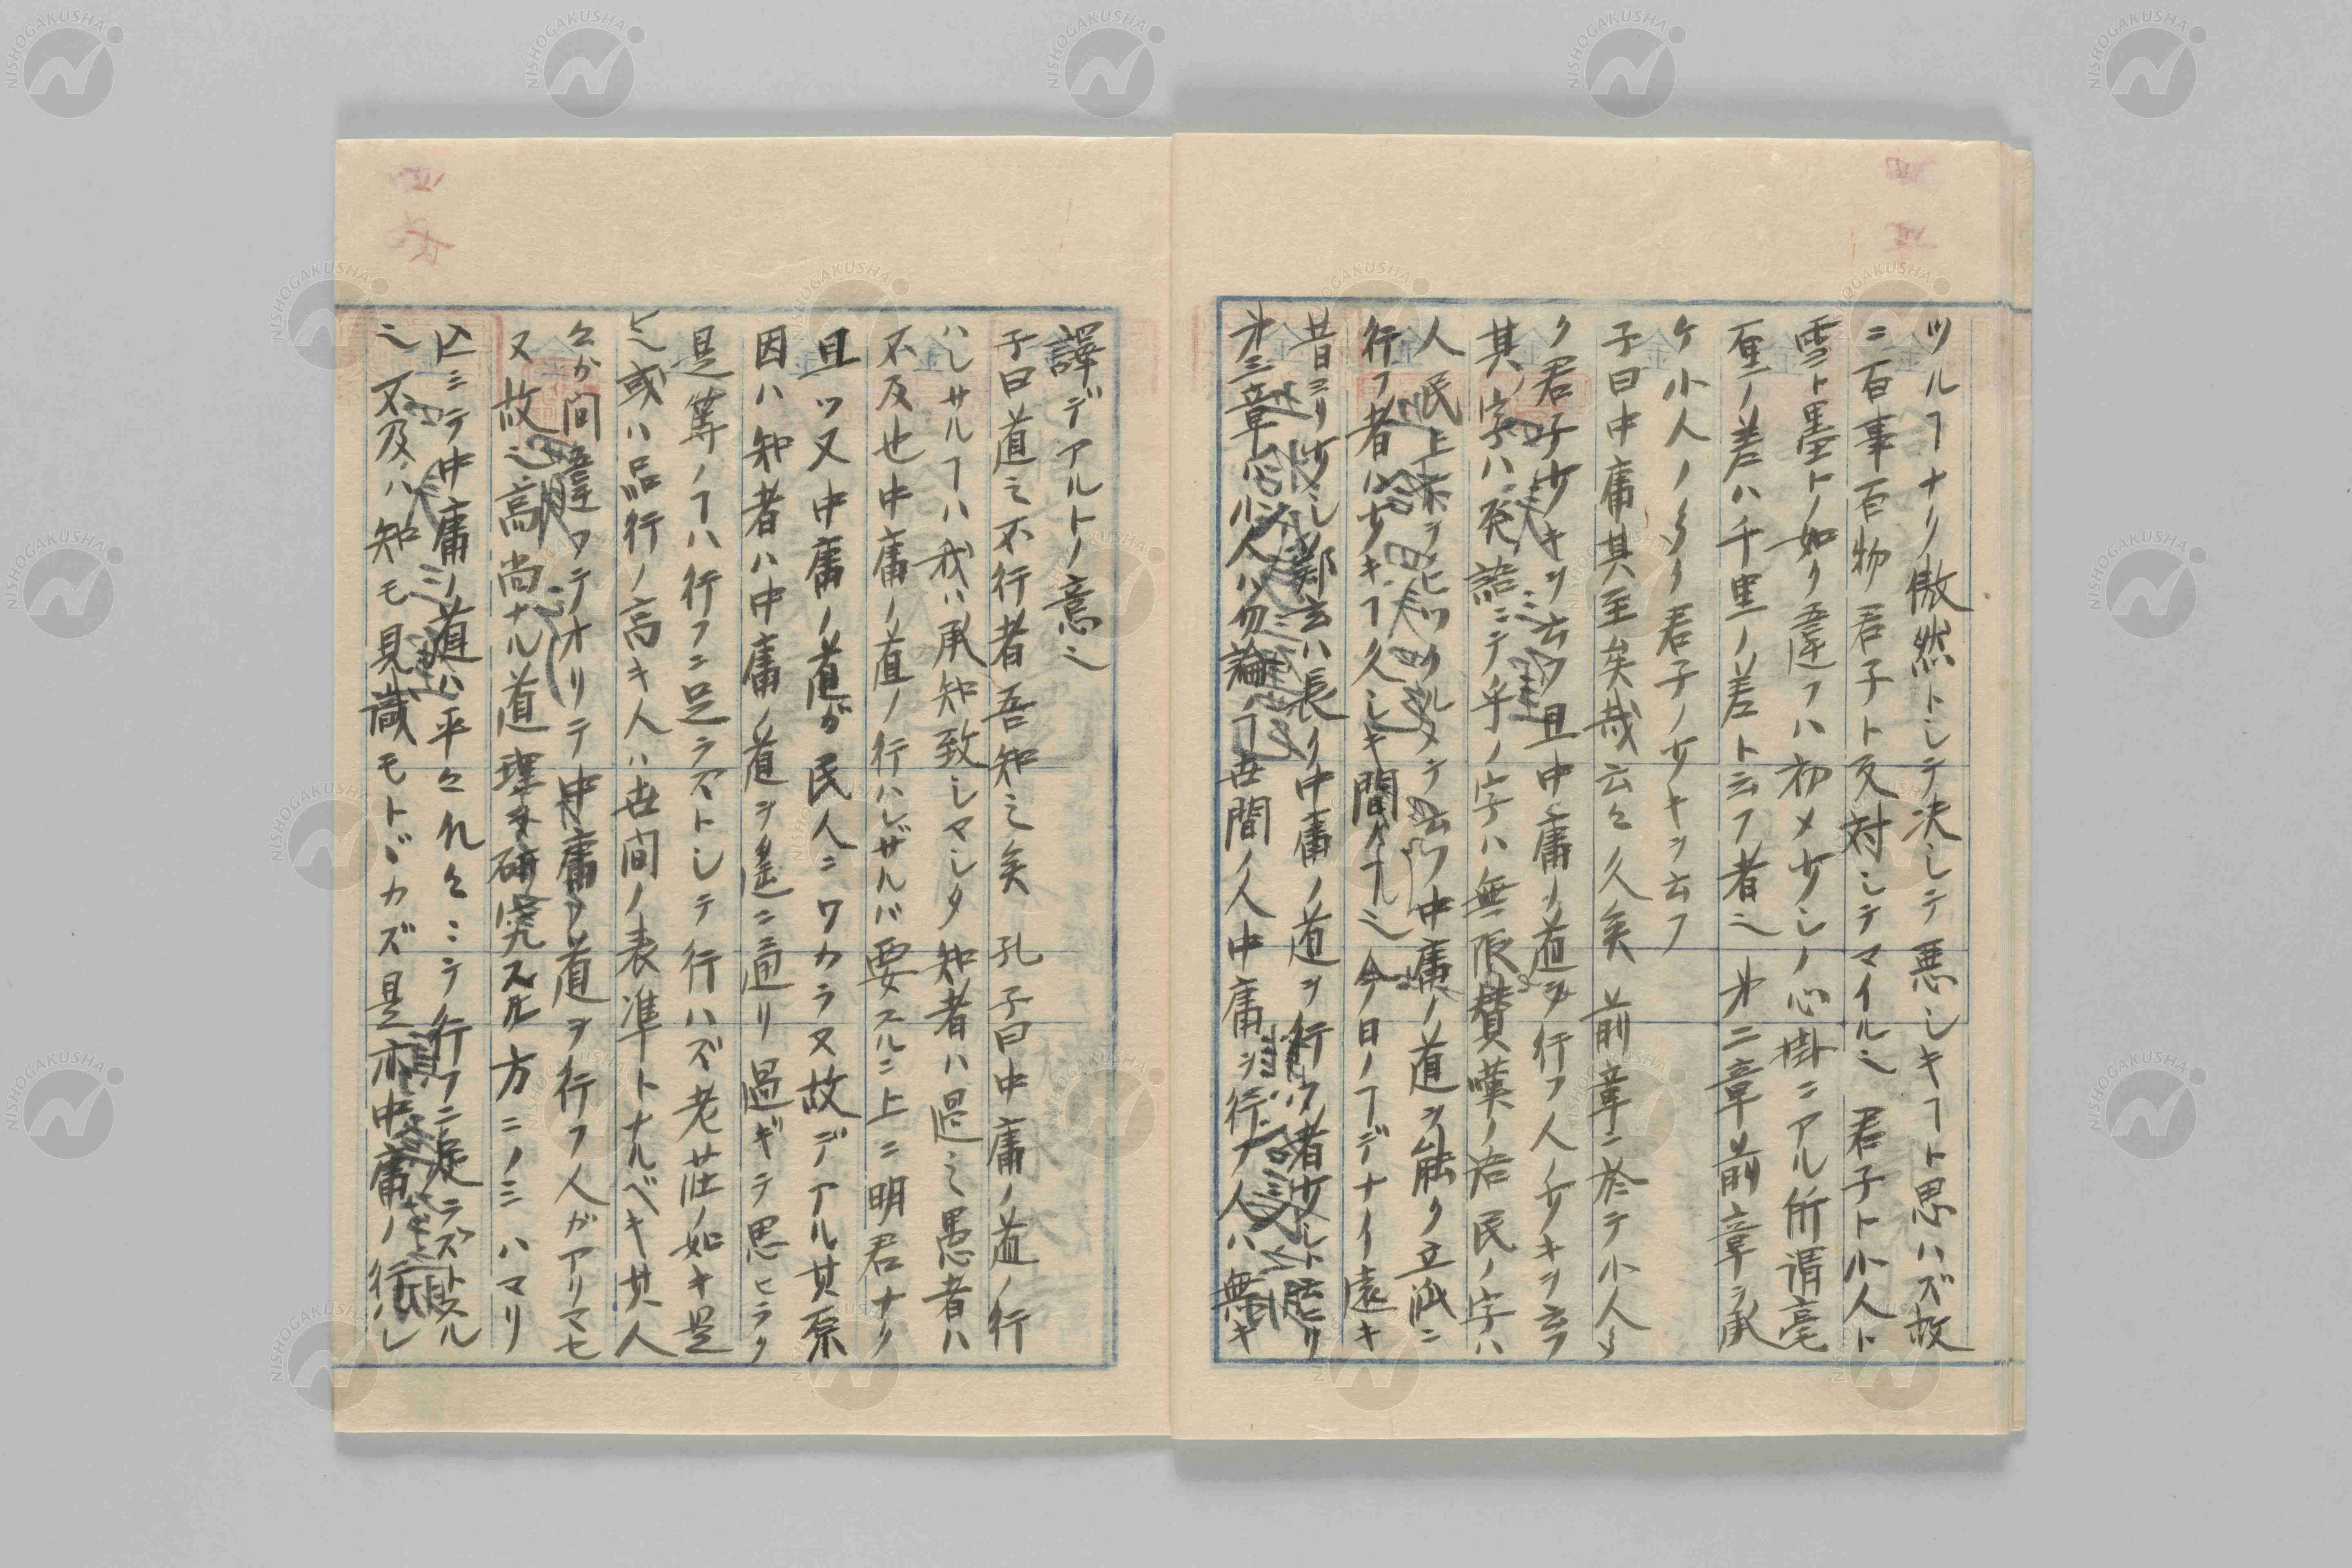 ツルヿナリ傲然トシテ決シテ悪シキヿト思ハズ故
ニ百事百物君子ト反対シテマイル也 君子ト小人ト
雪ト墨トノ如ク違フハ初メ少シノ心掛ニアル所謂毫
厘ノ差ハ千里ノ差ト云フ者也 第二章前章ヲ承
ケ小人ノ多ク君子ノ少キヲ云フ
子曰中庸其至矣哉云々久矣 前章ニ於テ小人多
ク君子少キヲ云フ且中庸ノ道ヲ行フ人ノ少キヲ云フ
其字ハ発語ニテ乎ノ字ハ無限賛嘆ノ語民ノ字ハ
人民上下ヲヒツクルメテ云フ中庸ノ道ヲ能ク立派ニ
行フ者ハ少キヿ久シキ間ノヿ也今日ノヿデナイ遠キ
昔ヨリ少シ鄭玄ハ長ク中庸ノ道ヲ行フ者少シト云ヒリ
第三章ハ小人ハ勿論ノヿ世間ノ人中庸ヲ行フ人ハ無キ
譯デアルトノ意也
子曰道之不行者吾知之矣 孔子曰中庸ノ道ノ行
ハレサルヿハ我ハ承知致シマシタ知者ハ過之愚者ハ
不及也中庸ノ道ノ行ハレザルバ要スルニ上ニ明君ナク
且ツ又中庸ノ道ガ民人ニワカラヌ故デアル其原
因ハ知者ハ中庸ノ道ヲ遙ニ通リ過ギテ思ヒラク
是等ノヿハ行フニ足ラズトシテ行ハズ老荘ノ如キ是
也或ハ品行ノ高キ人ハ世間ノ表準トナルベキ其人
々が間違フテオリテ中庸ノ道ヲ行フ人ガアリマセ
ヌ故也高尚ナル道理ヲ研究スル方ニノミハマリ
込ミテ中庸ノ道ハ平々凡々ニテ行フニ足ラズトスル
也不及ハ知モ見識モトヾカズ是亦中庸ノ行ハレ